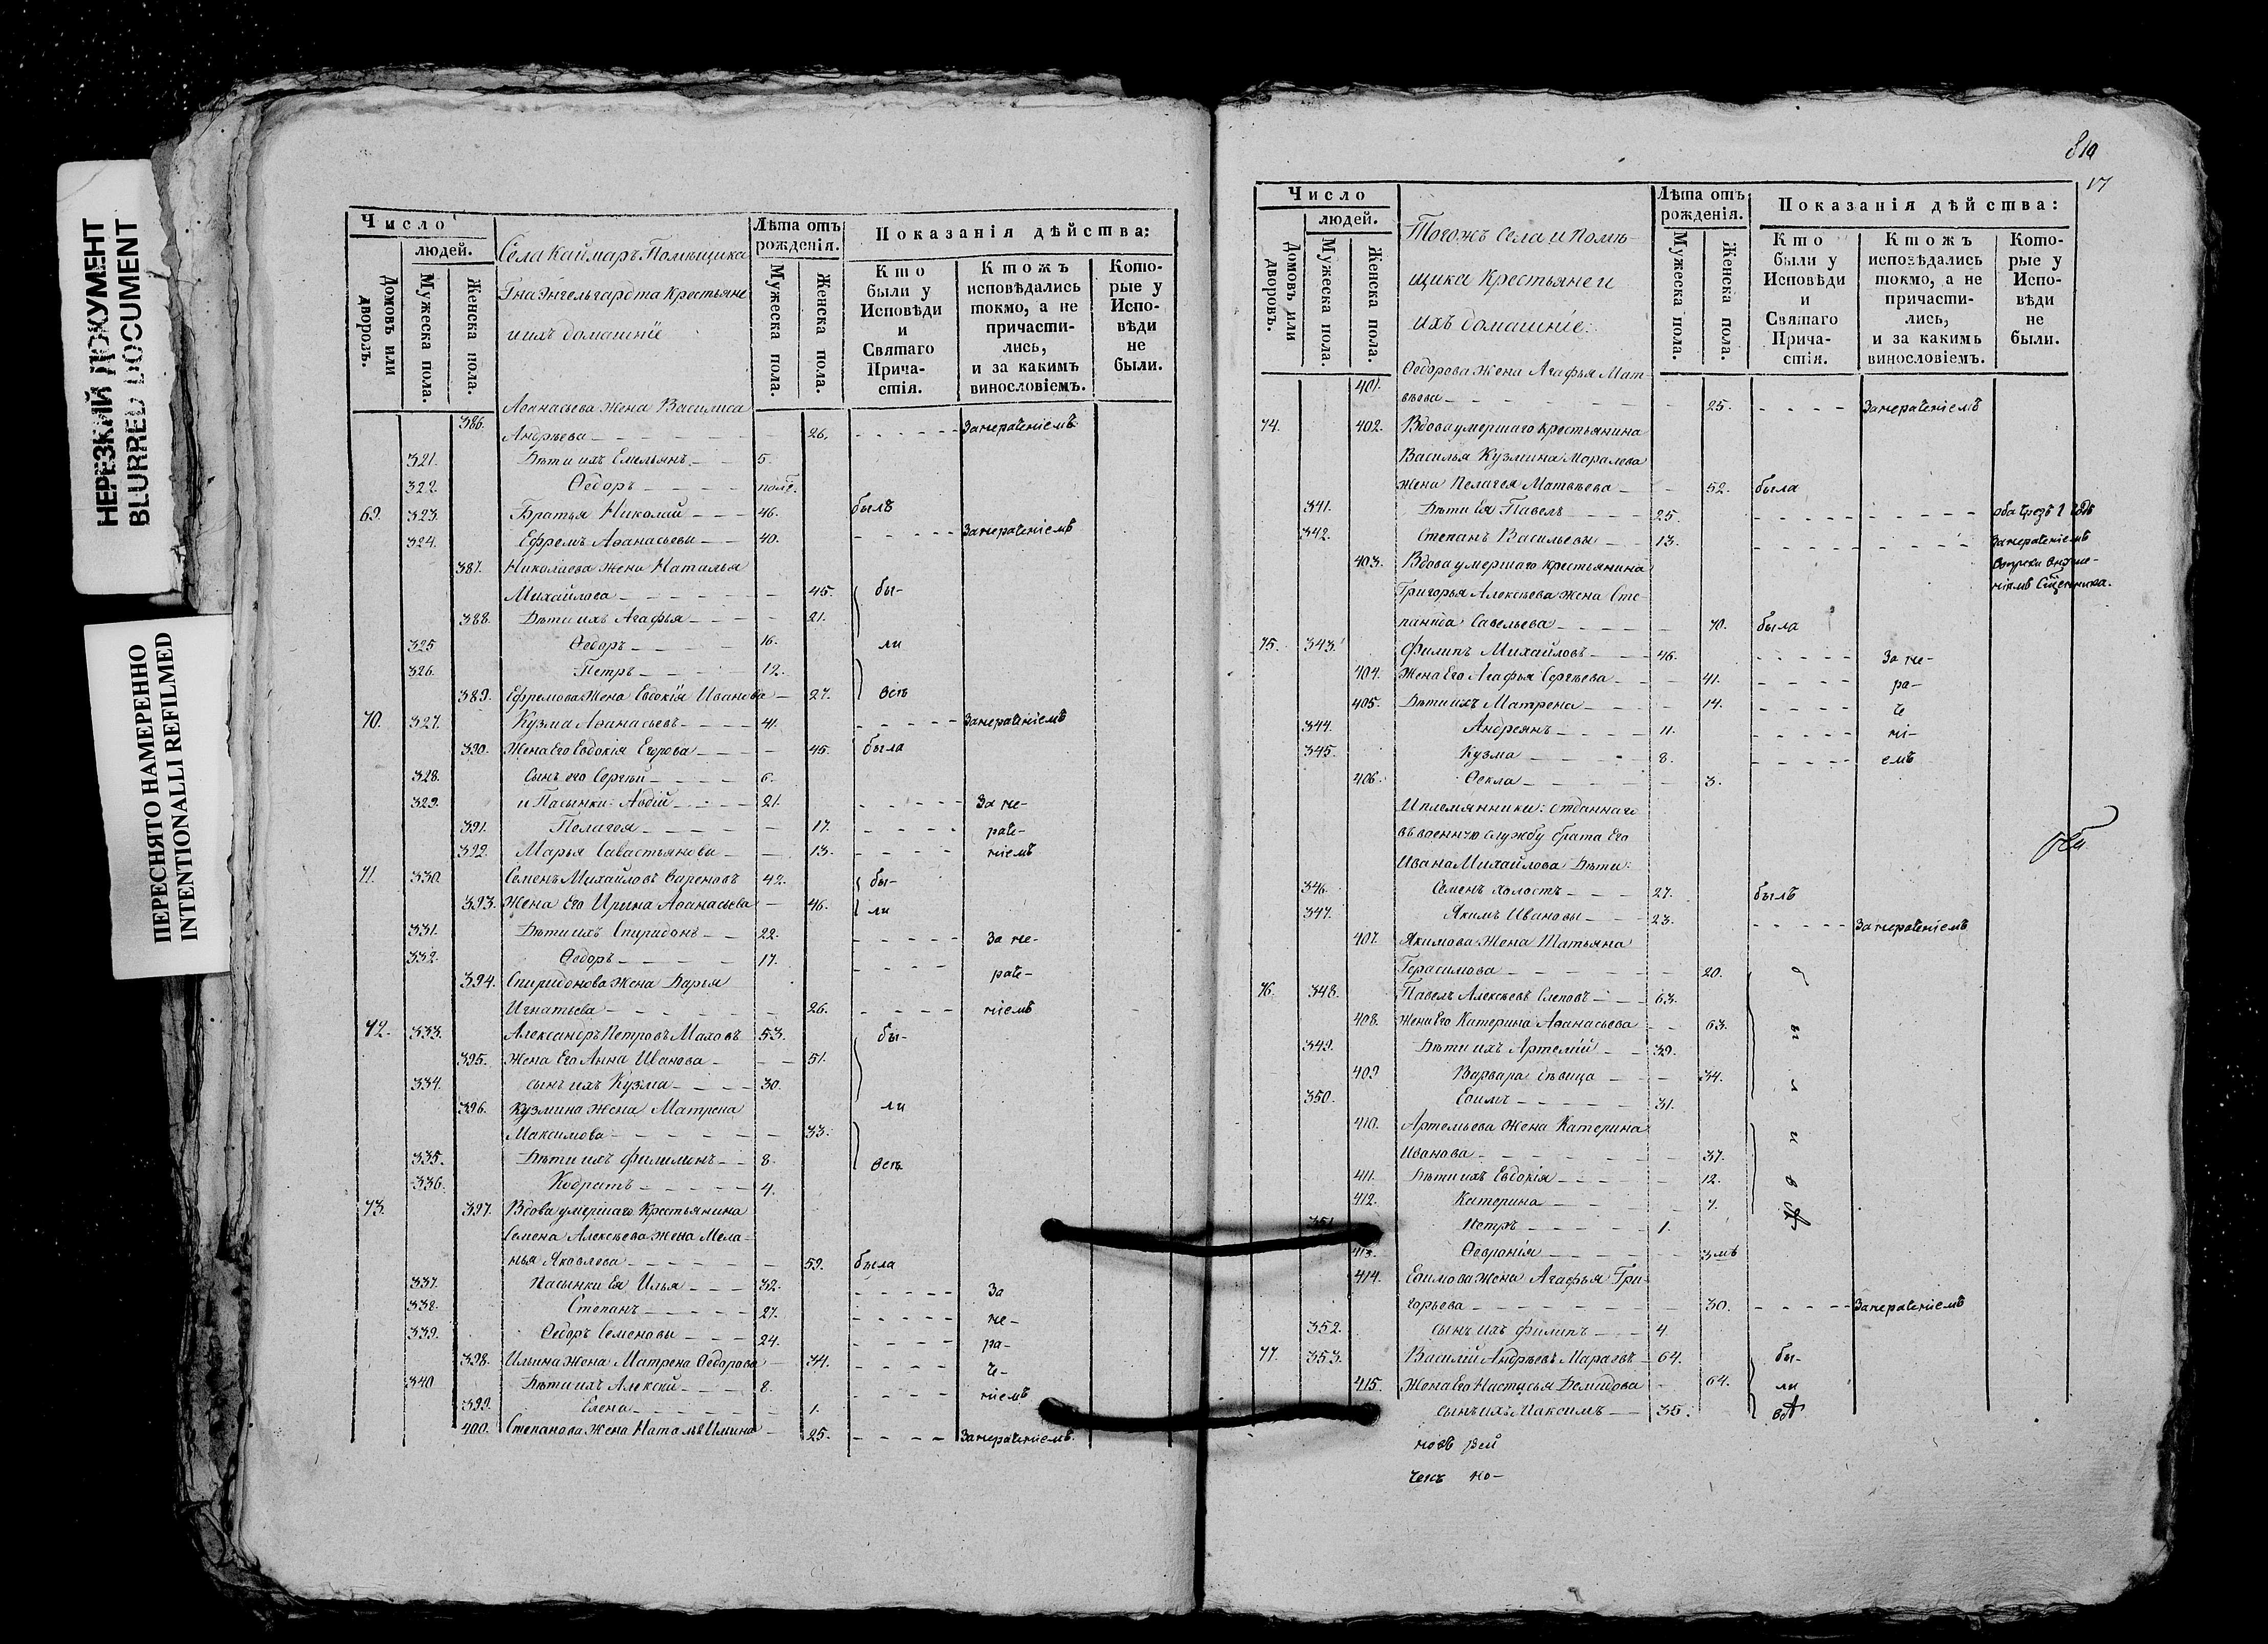 НЕРЕЗКИЙ ДОКУМЕНТ
BLURRED DOCUMENT
ПЕРЕСНЯТО НАМЕРЕННО
INTENTIONALLI REFILMED
Число
людей.
Домовъ или дворовъ.
Мужеска пола.
Женска пола.
Села Каймаръ Помѣщика
Гна Энгельгардта Крестьяне
и ихъ домашнiе
Лѣта отъ рожденiя.
Мужеска пола.
Женска пола.
Показанiя дѣйства:
Кто были у Исповѣди и Святаго Прича-стiя.
Ктожъ исповѣдались токмо, а не причасти-лись, и за какимъ винословiемъ.
Кото-рые у Испо-вѣди не были.
386. Аѳанасьева жена Василиса
Андрѣева 26. Занераченiемъ
321. Дѣти ихъ Емельянъ 5.
322. Ѳедоръ
69. 323. Братья Николай 46. былъ
324. Ефремъ Аѳанасьевы 40. Занераченiемъ
387. Николаева жена Наталья
Михайлова 45. бы-
388. Дѣти ихъ Агафья 21.
325 Ѳедоръ 16. ли
326. Петръ 12.
389. Ефремова жена Евдокiя Иванова 27. всѣ
70. 327. Кузма Аѳанасьевъ 41. Занераченiемъ
390. Жена его Евдокiя Егорова 45. была
328. Сынъ его Сергѣй 6.
329. и Пасынки: Авдiй 21. За не-
391. Пелагея 17. раче-
392. Марья Савастьяновы 13. нiемъ
71. 330. Семенъ Михайловъ 42. бы-
393. Жена Его Ирина Аѳанасьева 46. ли
331. Дѣти ихъ Спиридонъ 22. За не-
332. Ѳедоръ 17. раче-
394. Спиридонова жена Дарья
Игнатьева 26. нiемъ
72. 333. Александръ Петровъ Маховъ 53. бы-
395. Жена Его Анна Иванова 51.
334. сынъ ихъ Кузма 30.
396. Кузмина жена Матрена ли
Максимова 33.
335. Дѣти ихъ Филимонъ 8. всѣ
336. Кодратъ 4.
73. 397. Вдова умершаго Крестьянина
Семена Алексѣева жена Мела-
нья Яковлева 59. была
337. Пасынки Ея Илья 32. За
338. Степанъ 27. не-
339. Ѳедоръ Семеновы 24. ра-
398. Ильина жена Матрена Ѳедорова 34. че-
340 Дѣти ихъ Алексѣй 8. нiемъ
399. Елена 1.
400. Степанова жена Наталья Ильина 25. Занераченiемъ.
810
17
Число
людей.
Домовъ или дворовъ.
Мужеска пола.
Женска пола.
Тогожъ Села и Помѣ-
щика Крестьяне и
ихъ домашнiе:
Лѣта отъ рожденiя.
Мужеска пола.
Женска пола.
Показанiя дѣйства:
Кто были у Исповѣди и Святаго Прича-стiя.
Ктожъ исповѣдались токмо, а не причасти-лись, и за какимъ винословiемъ.
Кото-рые у Испо-вѣди не были.
401. Ѳедорова жена Агафья Мат-
вѣева 25. Занераченiемъ
74. 402. Вдова умершаго крестьянина
Василья Кузмина Моралева
жена Пелагея Матвѣева 52. была
341. Дѣти Ея Павелъ 25.
342. Степанъ Васильевы 13. Занераченiемъ
403. Вдова умершаго крестьянина
Григорья Алексѣева жена Сте-
панида Савельева 70. была
75. 343. Филипъ Михайловъ 46. За не-
404. Жена Его Агафья Сергѣева 41. ра-
405. Дѣти ихъ Матрена 14. че
344. Андреянъ 11. нi-
345. Кузма 8. емъ
406. Ѳекла 3.
И племянники: отданнаго
въ военную службу брата Его
Ивана Михайлова Дѣти:
346. Семенъ холостъ 27. былъ
347. Якимъ Ивановы 23. Занераченiемъ
407. Якимова жена Татьяна
Герасимова 20.
76. 348. Павелъ Алексѣевъ Слеповъ 63.
408. Жена Его Катерина Аѳанасьева 63.
349. Дѣти ихъ Артемiй 39.
409 Варвара дѣвица 34.
350. Еѳимъ 31.
410. Артемьева жена Катерина
Иванова 37.
411. Дѣти ихъ Евдокiя 12.
412. Катерина 7.
351. Петръ 1.
413. Ѳефронiя
414. Еѳимова жена Агафья Гри-
горьева 30. Занераченiемъ
352. сынъ ихъ Филипъ 4.
77. 353. Василiй Андрѣевъ 64. бы-
415. Жена Его Настасья Демидова 64. ли
сынъ ихъ Максимъ 35. всѣ